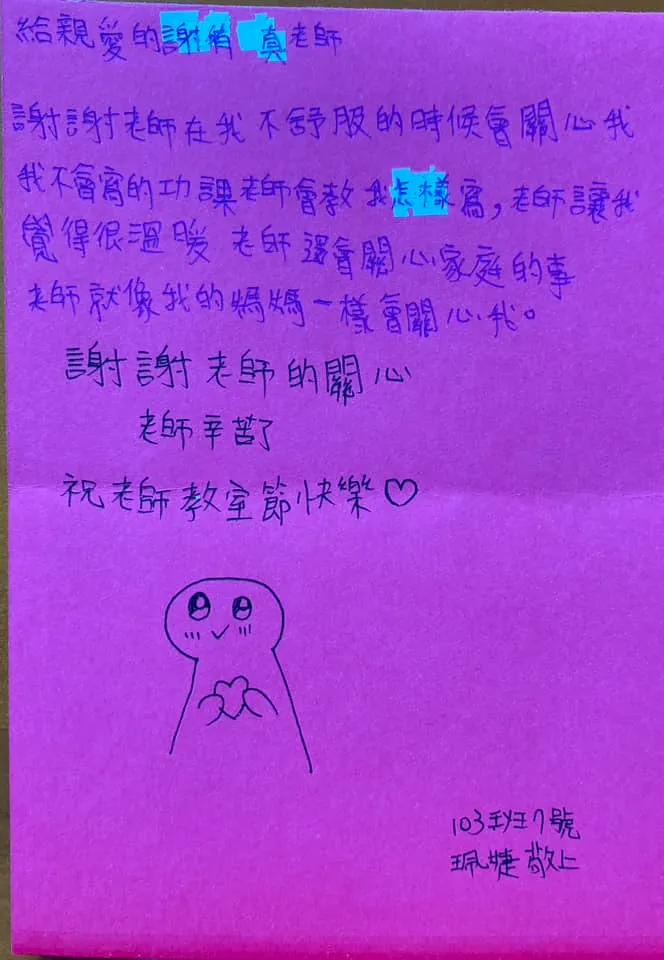 給親愛的謝 真老師
謝謝老師在我不舒服的時候會關心我
我不會寫的功課老師會教我怎樣寫，老師讓我
覺得很溫暖 老師還會關心家庭的事
老師就像我的媽媽一樣會關心我。
謝謝老師的關心
老師辛苦了
祝老師教室節快樂♡
103班7號
珮婕敬上